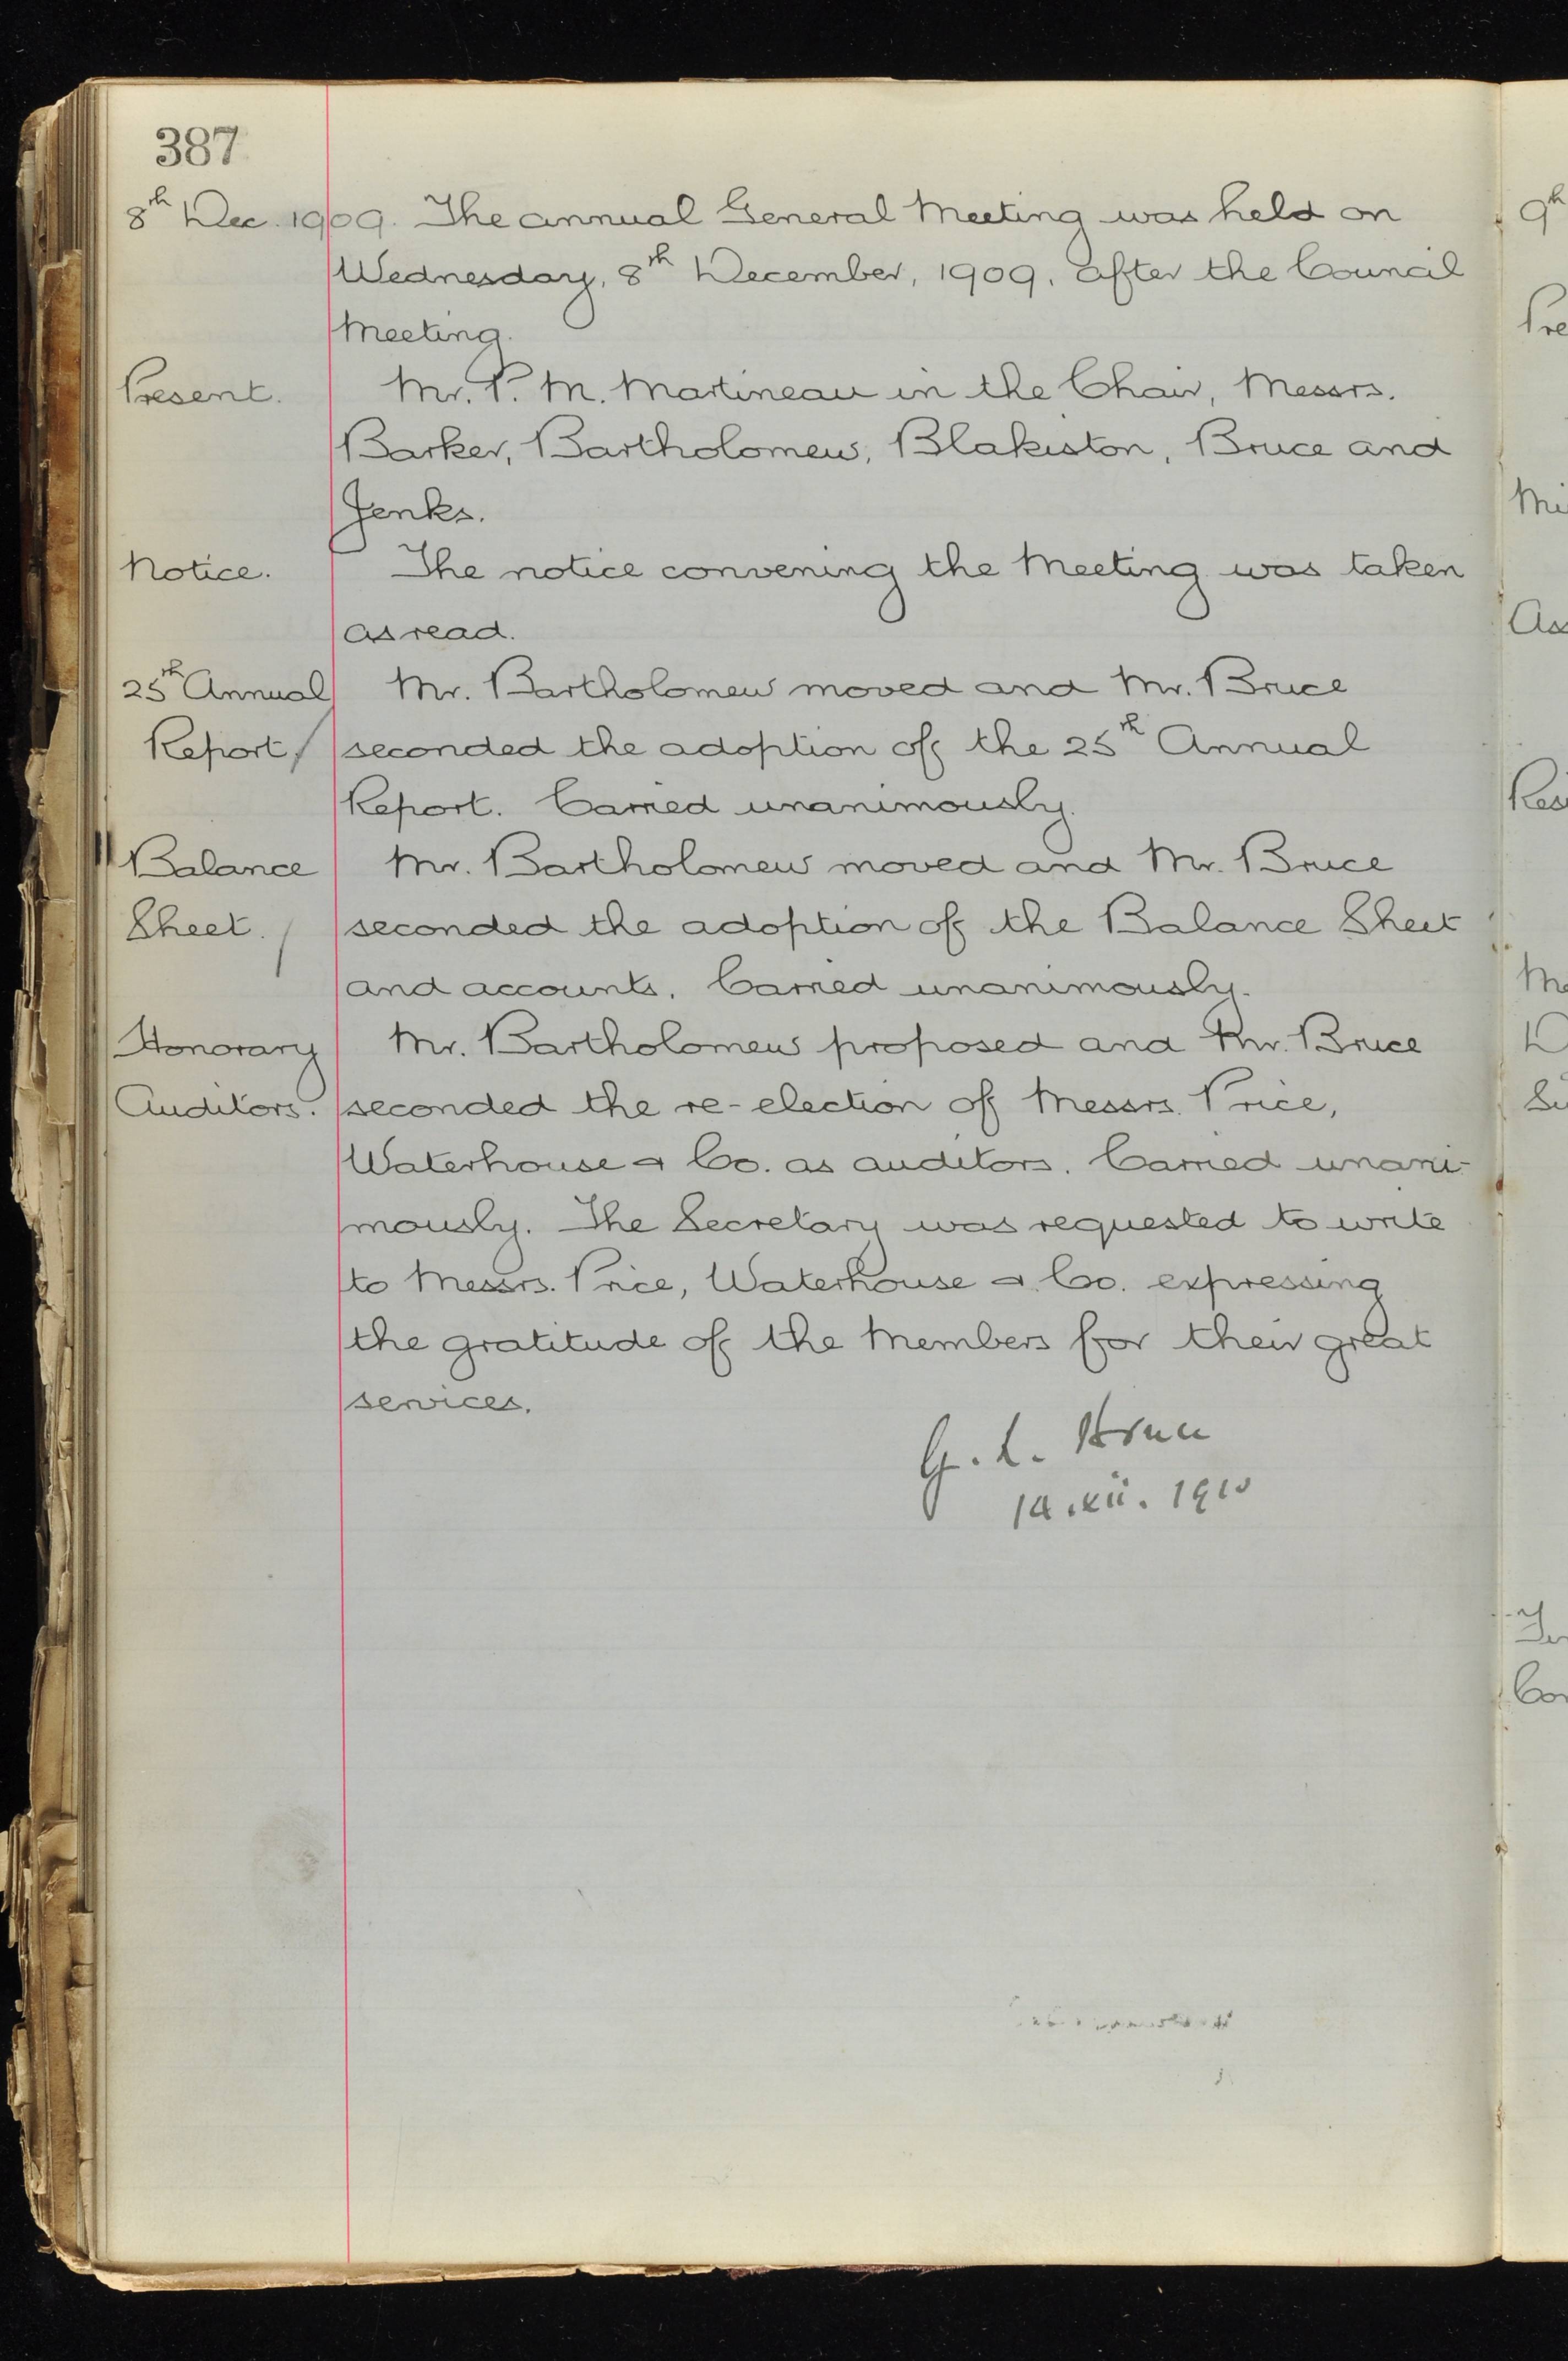 387
8th Dec. 1909. The annual General Meeting was held on
Wednesday, 8th December, 1909, after the Council
Meeting.
Present. Mr. P. M. Martineau in the Chair, Messrs.
Barker, Bartholomew, Blakiston, Bruce and
Jenks.
Notice. The notice convening the Meeting was taken
as read.
25th Annual Mr. Bartholomew moved and Mr. Bruce
Report, seconded the adoption of the 25th Annual
Report. Carried unanimously.
Balance Mr. Bartholomew moved and Mr. Bruce
Sheet. seconded the adoption of the Balance Sheet
and accounts. Carried unanimously.
Honorary Mr. Bartholomew proposed and Mr. Bruce
Auditors. seconded the re-election of Messrs. Price,
Waterhouse & Co. as auditors. Carried unani-
mously. The Secretary was requested to write
to Messrs. Price, Waterhouse & Co. expressing
the gratitude of the Members for their great
services.
G. L. Bruce
14.xii.1910
9th
Pre
Mi
As
Res
Me
D
Su
Co